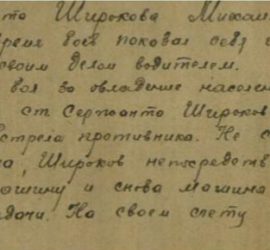 то Широкова Михаи
время боев показал себя
своим делом водителем.
боя за овладение населен
ст. Сержанта Широков
стрела противника. Не с
Широков непосредств
машину и снова машина
дачи. На своем счету